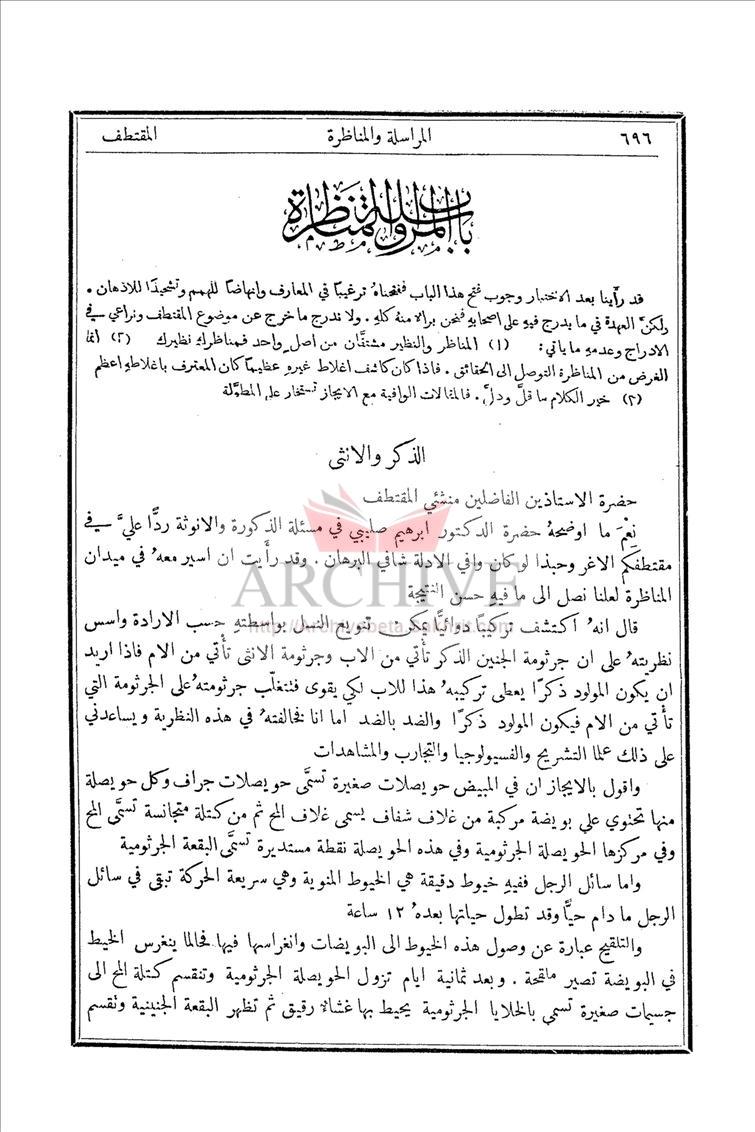 ٦٩٦ المراسلة والمناظرة المقتطف
باب المراسلة والمناظرة
قد رأينا بعد الاختبار وجوب فتح هذا الباب ففتحناهُ ترغيبًا في المعارف وانهاضًا للهمم وتشحيذًا للاذهان .
ولكنّ العهدة في ما يدرج فيهِ على اصحابهِ فنحن براء منه كلهِ . ولا ندرج ما خرج عن موضوع المقتطف ونراعي في
الادراج وعدمهِ ما يأتي : (١) المناظر والنظير مشتقَّان من اصل واحد فمناظرك نظيرك (٢) انما
الغرض من المناظرة التوصل الى الحقائق . فاذا كان كاشف اغلاط غيرهِ عظيمًا كان المعترف باغلاطهِ اعظم
(٣) خير الكلام ما قلَّ ودلَّ . فالمقالات الوافية مع الايجاز تستخار على المطوَّلة
الذكر والانثى
حضرة الاستاذين الفاضلين منشئي المقتطف
نِعْمَ ما اوضحهُ حضرة الدكتور ابرهيم صليبي في مسئلة الذكورة والانوثة ردًّا عليَّ في
مقتطفكم الاغر وحبذا لو كان وافي الادلة شافي البرهان . وقد رأَيت ان اسير معهُ في ميدان
المناظرة لعلنا نصل الى ما فيهِ حسن النتيجة
ARCHIVE
http://Archivebeta.Sakhrit.com
قال انهُ اكتشف تركيبًا دوائيًّا يمكن تنويع النسل بواسطتهِ حسب الارادة واسس
نظريتهُ على ان جرثومة الجنين الذكر تأتي من الاب وجرثومة الانثى تأتي من الام فاذا اريد
ان يكون المولود ذكرًا يعطى تركيبهُ هذا للاب لكي يقوى فتتغلّب جرثومتهُ على الجرثومة التي
تأتي من الام فيكون المولود ذكرًا والضد بالضد اما انا فخالفتهُ في هذه النظرية ويساعدني
على ذلك علما التشريح والفسيولوجيا والتجارب والمشاهدات
واقول بالايجاز ان في المبيض حويصلات صغيرة تسمَّى حويصلات جراف وكل حويصلة
منها تحتوي على بويضة مركبة من غلاف شفاف يسمى غلاف المح ثم من كتلة متجانسة تسمَّى المح
وفي مركزها الحويصلة الجرثومية وفي هذه الحويصلة نقطة مستديرة تسمَّى البقعة الجرثومية
واما سائل الرجل ففيهِ خيوط دقيقة هي الخيوط المنوية وهي سريعة الحركة تبقى في سائل
الرجل ما دام حيًّا وقد تطول حياتها بعدهُ ١٢ ساعة
والتلقيح عبارة عن وصول هذه الخيوط الى البويضات وانغراسها فيها فحالما ينغرس الخيط
في البويضة تصير ملقحة . وبعد ثمانية ايام تزول الحويصلة الجرثومية وتنقسم كتلة المح الى
جسيمات صغيرة تسمى بالخلايا الجرثومية يحيط بها غشاء رقيق ثم تظهر البقعة الجنينية وتقسم